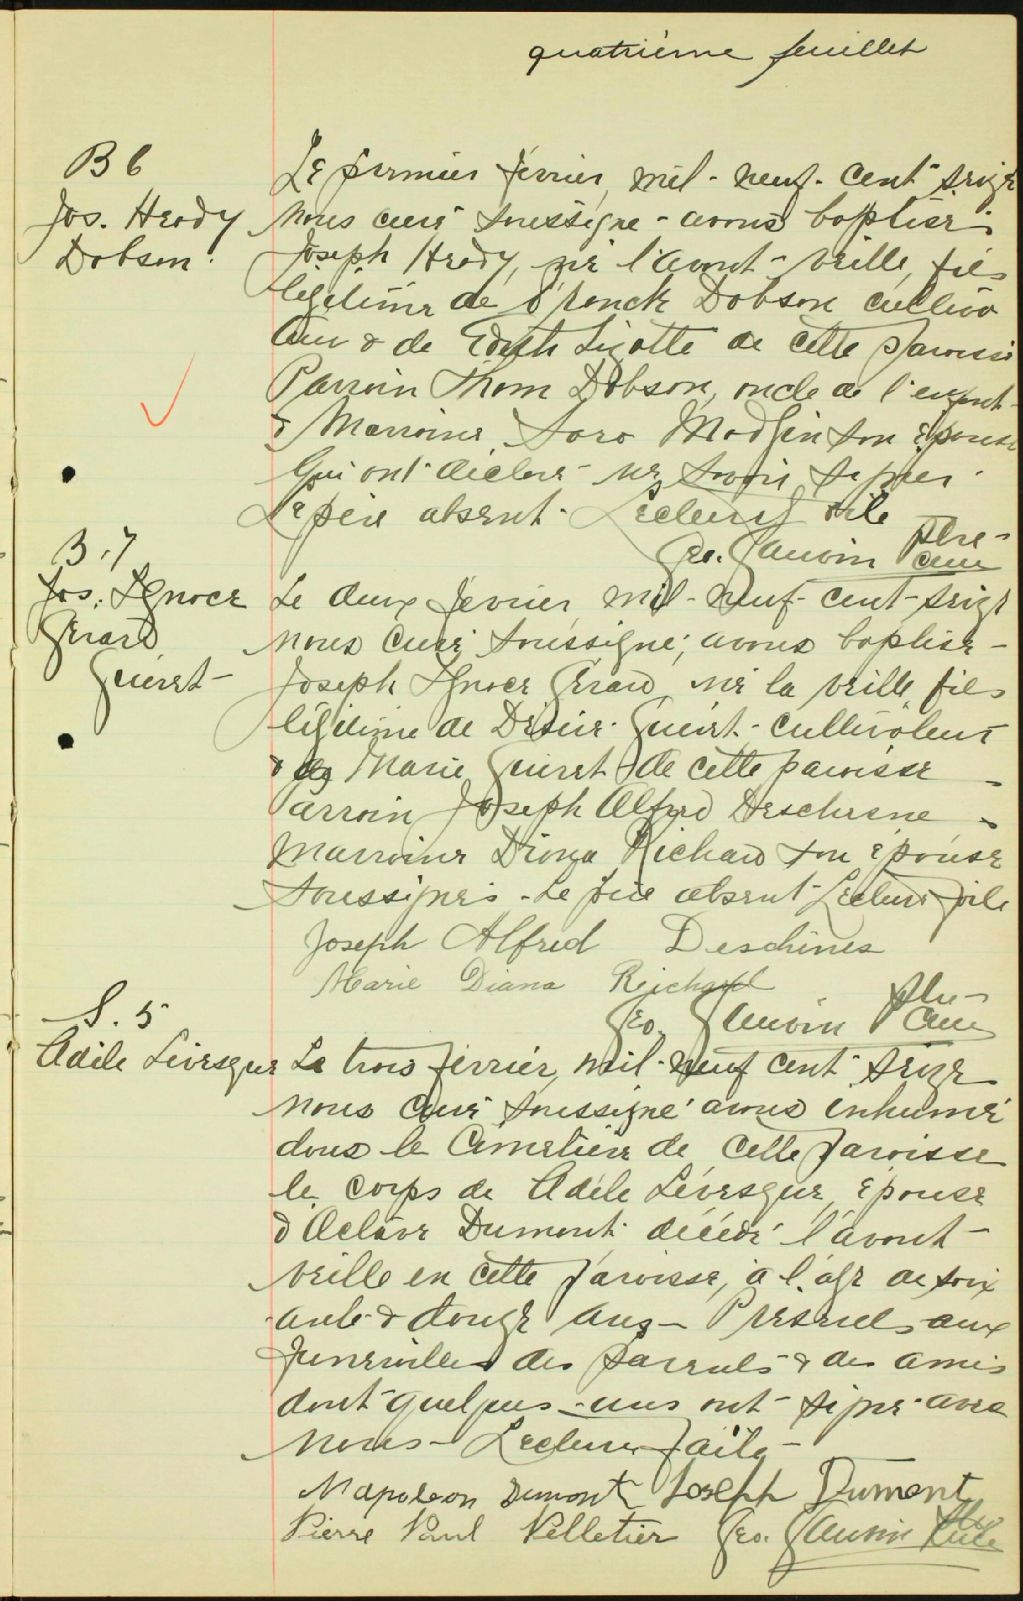 quatrième feuillet
B 6
Jos. Hredy
Dobson.
Le premier février, mil-neuf-cent seize
nous curé soussigné avons baptisé
Joseph Hredy, né l'avant-veille, fils
légitime de Franck Dobson cultiva
teur & de Edith Lizotte de cette paroisse
Parrain Thom Dobson, oncle de l'enfant
& Marraine Sara son épouse
qui ont déclaré ne savoir signer.
Le père absent. Lecture faite
Geo. Gauvin Ptre-
curé
B. 7
Jos. Ignace
Gérard
Guéret
Le deux février, mil-neuf-cent-seize
nous curé soussigné, avons baptisé
Joseph Ignace Gérard, né la veille fils
légitime de Désiré Guéret cultivateur
& de Marie Guéret de cette paroisse
Parrain Joseph Alfred Deschesne
Marraine Diana Richard son épouse
soussignés. Le père absent Lecture faite
Joseph Alfred Deschines
Marie Diana Reichard
Geo. Gauvin Ptre-
Curé
S. 5
Adèle Lévesque
Le trois février, mil-neuf cent seize
nous curé soussigné avons inhumé
dans le Cimetière de cette paroisse
le corps de Adèle Lévesque, épouse
d'Octave Dumont décédé l'avant-
veille en cette paroisse, à l'âge de soix
ante & douze ans - Présents aux
funérailles des parents & des amis
dont quelques-uns ont signé avec
nous - Lecture faite -
Napoleon Dumont Joseph Dumont
Pierre Paul Pelletier Geo. Gauvin Ptre
Curé